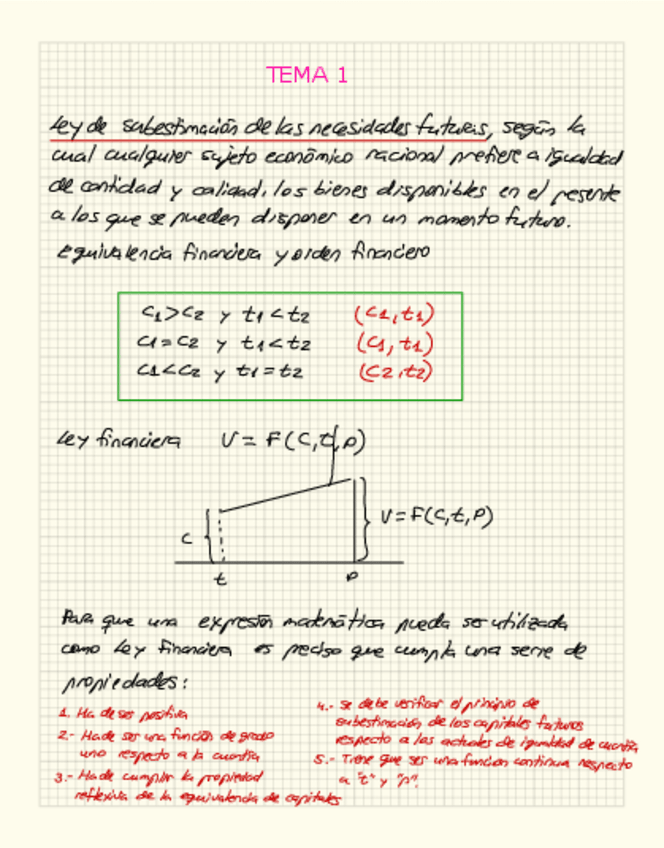 TEMA 1
Ley de subestimación de las necesidades futuras, según la
cual cualquier sujeto económico racional prefiere a igualdad
de cantidad y calidad, los bienes disponibles en el presente
a los que se pueden disponer en un momento futuro.
Equivalencia financiera y orden financiero
C1>C2 y t1<t2 (C1,t1)
C1=C2 y t1<t2 (C1,t1)
C1<C2 y t1=t2 (C2,t2)
Ley financiera V = F(C,t,p)
C
V=F(C,t,P)
t
p
Para que una expresión matemática pueda ser utilizada
como Ley Financiera es preciso que cumpla una serie de
propiedades:
1. Ha de ser positiva
2.- Ha de ser una función de grado
uno respecto a la cuantía
3.- Ha de cumplir la propiedad
reflexiva de la equivalencia de capitales
4.- Se debe verificar el principio de
subestimación de los capitales futuros
respecto a los actuales de igualdad de cuantía
5.- Tiene que ser una función continua respecto
a "t" y "p".